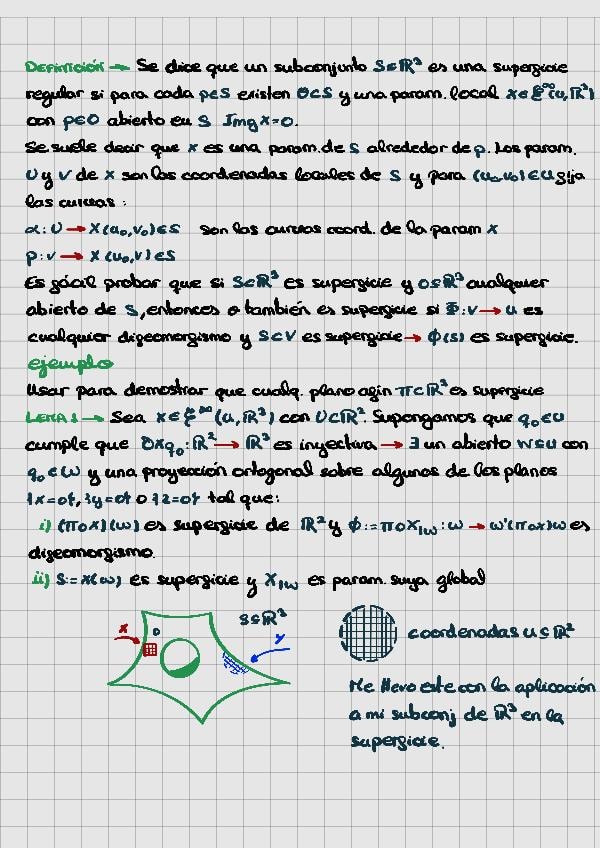 DEFINICIÓN → Se dice que un subconjunto S⊆ℝ³ es una supergicie
regular si para cada p∈S existen O⊂S y una param. local x∈ξ^∞(u,ℝ³)
con p∈O abierto en S Img x=o.
Se suele decir que x es una param. de S alrededor de p. Los param.
U y V de x son las coordenadas locales de S y para (u₀,v₀)∈u gija
las curvas:
α: U → X(u₀,v₀)∈S son las curvas coord. de la param x
β: v → X(u₀,v)∈S
Es gácil probar que si S⊂ℝ³ es supergicie y O≤ℝ³ cualquier
abierto de S, entonces o también es supergicie si Φ: v → u es
cualquier digeomorgismo y S⊂V es supergicie → ϕ(s) es supergicie.
ejemplo
Usar para demostrar que cualq. plano agin π⊂ℝ³ es supergicie
LEMA 1 → Sea x∈ξ^∞(u,ℝ³) con U⊂ℝ². Supongamos que q₀∈u
cumple que Dxq₀: ℝ² → ℝ³ es inyectiva → ∃ un abierto w≤u con
q₀∈w y una proyección ortogonal sobre algunos de los planos
{x=0}, {y=0} o {z=0} tal que:
i) (πox)(w) es supergicie de ℝ² y ϕ:=πox|w: w → w'(πox)w es
digeomorgismo.
ii) S:=x(w) es supergicie y X|w es param. suya global
x o S⊆ℝ³ y
coordenadas u⊆ℝ²
Me llevo este con la aplicación
a mi subconj de ℝ³ en la
supergicie.